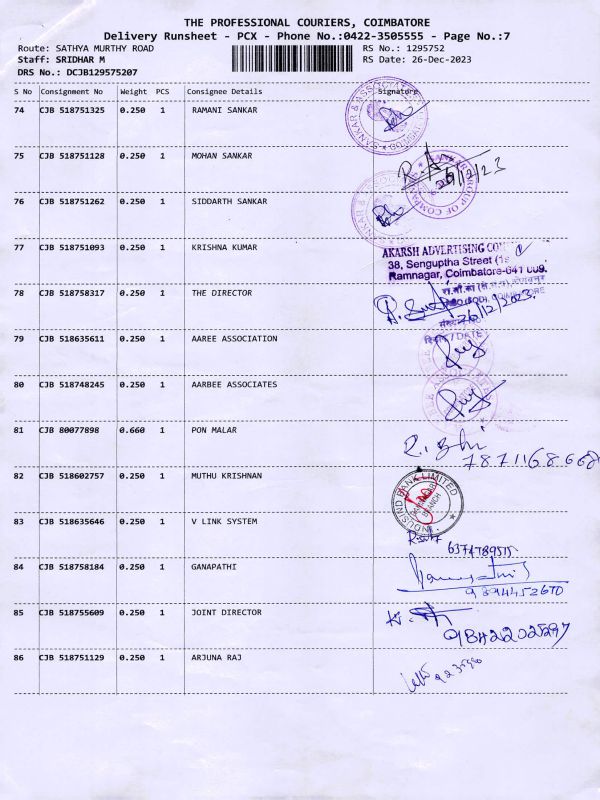 THE PROFESSIONAL COURIERS, COIMBATORE
Delivery Runsheet - PCX - Phone No.:0422-3505555 - Page No.:7
Route: SATHYA MURTHY ROAD RS No.: 1295752
Staff: SRIDHAR M RS Date: 26-Dec-2023
DRS No.: DCJB129575207
S No Consignment No Weight PCS Consignee Details Signature
74 CJB 518751325 0.250 1 RAMANI SANKAR
SANKAR & ASSOCIATES
75 CJB 518751128 0.250 1 MOHAN SANKAR
26/12/23
GROUP OF COMPANIES
76 CJB 518751262 0.250 1 SIDDARTH SANKAR
77 CJB 518751093 0.250 1 KRISHNA KUMAR
AKARSH ADVERTISING
38, Senguptha Street
Ramnagar, Coimbatore-641 009.
78 CJB 518758317 0.250 1 THE DIRECTOR
26/12/2023
/ DATE
79 CJB 518635611 0.250 1 AAREE ASSOCIATION
80 CJB 518748245 0.250 1 AARBEE ASSOCIATES
81 CJB 80077898 0.660 1 PON MALAR
7871168668
82 CJB 518602757 0.250 1 MUTHU KRISHNAN
INDUSIND BANK LIMITED
BRANCH
83 CJB 518635646 0.250 1 V LINK SYSTEM
6374789515
84 CJB 518758184 0.250 1 GANAPATHI
9894452670
85 CJB 518755609 0.250 1 JOINT DIRECTOR
9842202597
86 CJB 518751129 0.250 1 ARJUNA RAJ